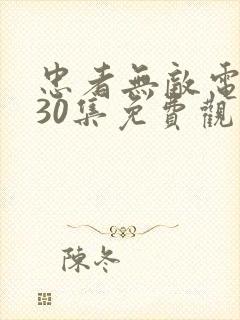 忠者無敵電
30集免費觀
陳冬